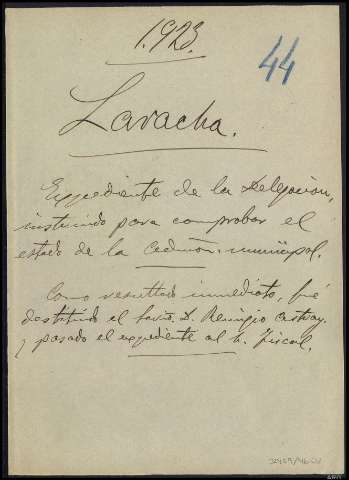 1.923.
44
Laracha.
Expediente de la Delegación,
instruido para comprobar el
estado de la Admón. municipal.
Como resultado inmediato, fué
destituido el Secrio. D. Remigio
y pasado el expediente al Sr. Fiscal.